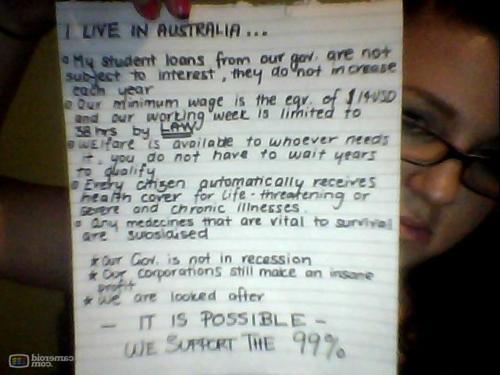 I LIVE IN AUSTRALIA...
• My student loans from our gov. are not
subject to interest, they do not increase
each year
• Our minimum wage is the eqv. of $14 USD
and our working week is limited to
38hrs by LAW
• Welfare is available to whoever needs
it, you do not have to wait years
to qualify
• Every citizen automatically receives
health cover for life-threatening or
severe and chronic illnesses.
• Any medecines that are vital to survival
are subsidised
* Our Gov. is not in recession
* Our corporations still make an insane
profit
* We are looked after
- IT IS POSSIBLE -
WE SUPPORT THE 99%
cameroid.com